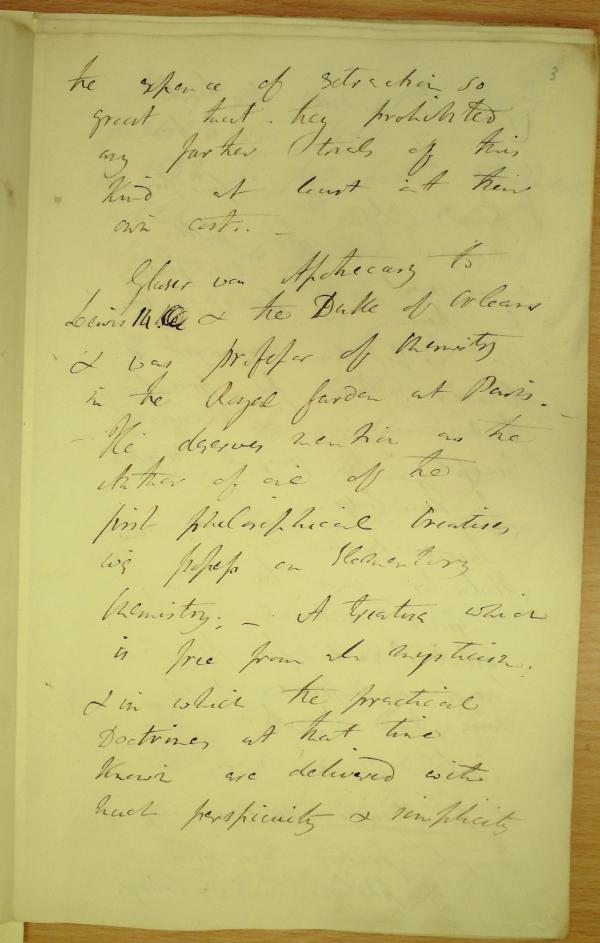 3
the expence of extraction so
great that they prohibited
any farther trials of this
Kind at least at their
own cost. _
Glaser was Apothecary to
Lewis 14. & the Duke of Orleans
& was professor of Chemistry
in the Royal Garden at Paris. _
_ He deserves mention as the
Author of one of the
first philosophical treatises
we possess on Elementary
Chemistry; _ A treatise which
is free from all mysticism.
& in which the practical
Doctrines at that time
Known are delivered with
much perspicuity & simplicity